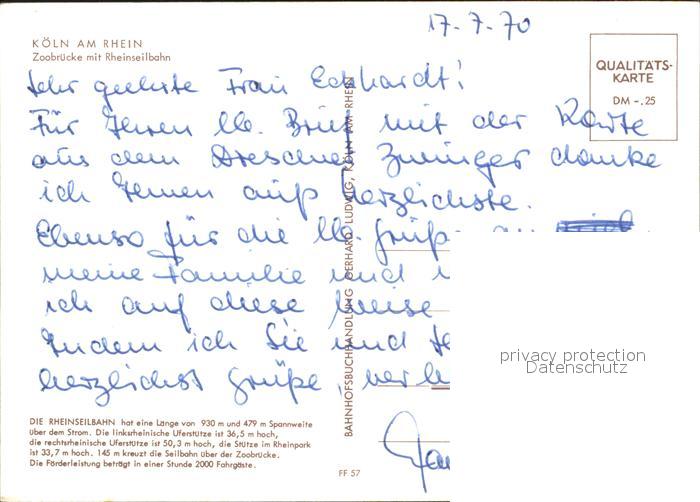 17.7.70
KÖLN AM RHEIN
Zoobrücke mit Rheinseilbahn
QUALITÄTS-
KARTE
DM -.25
Sehr geehrte Frau Eckhardt!
Für Ihren lb. Brief mit der Karte
aus dem Dresdner Zwinger danke
ich Ihnen aufs herzlichste.
Ebenso für die lb. Grüße
meine Familie und
ich auf diese Weise
Indem ich Sie und
herzlichst grüße, ver
BAHNHOFSBUCHHANDLUNG GERHARD LUDWIG, KÖLN AM RHEIN
privacy protection
Datenschutz
DIE RHEINSEILBAHN hat eine Länge von 930 m und 479 m Spannweite
über dem Strom. Die linksrheinische Uferstütze ist 36,5 m hoch,
die rechtsrheinische Uferstütze ist 50,3 m hoch, die Stütze im Rheinpark
ist 33,7 m hoch. 145 m kreuzt die Seilbahn über der Zoobrücke.
Die Förderleistung beträgt in einer Stunde 2000 Fahrgäste.
FF 57